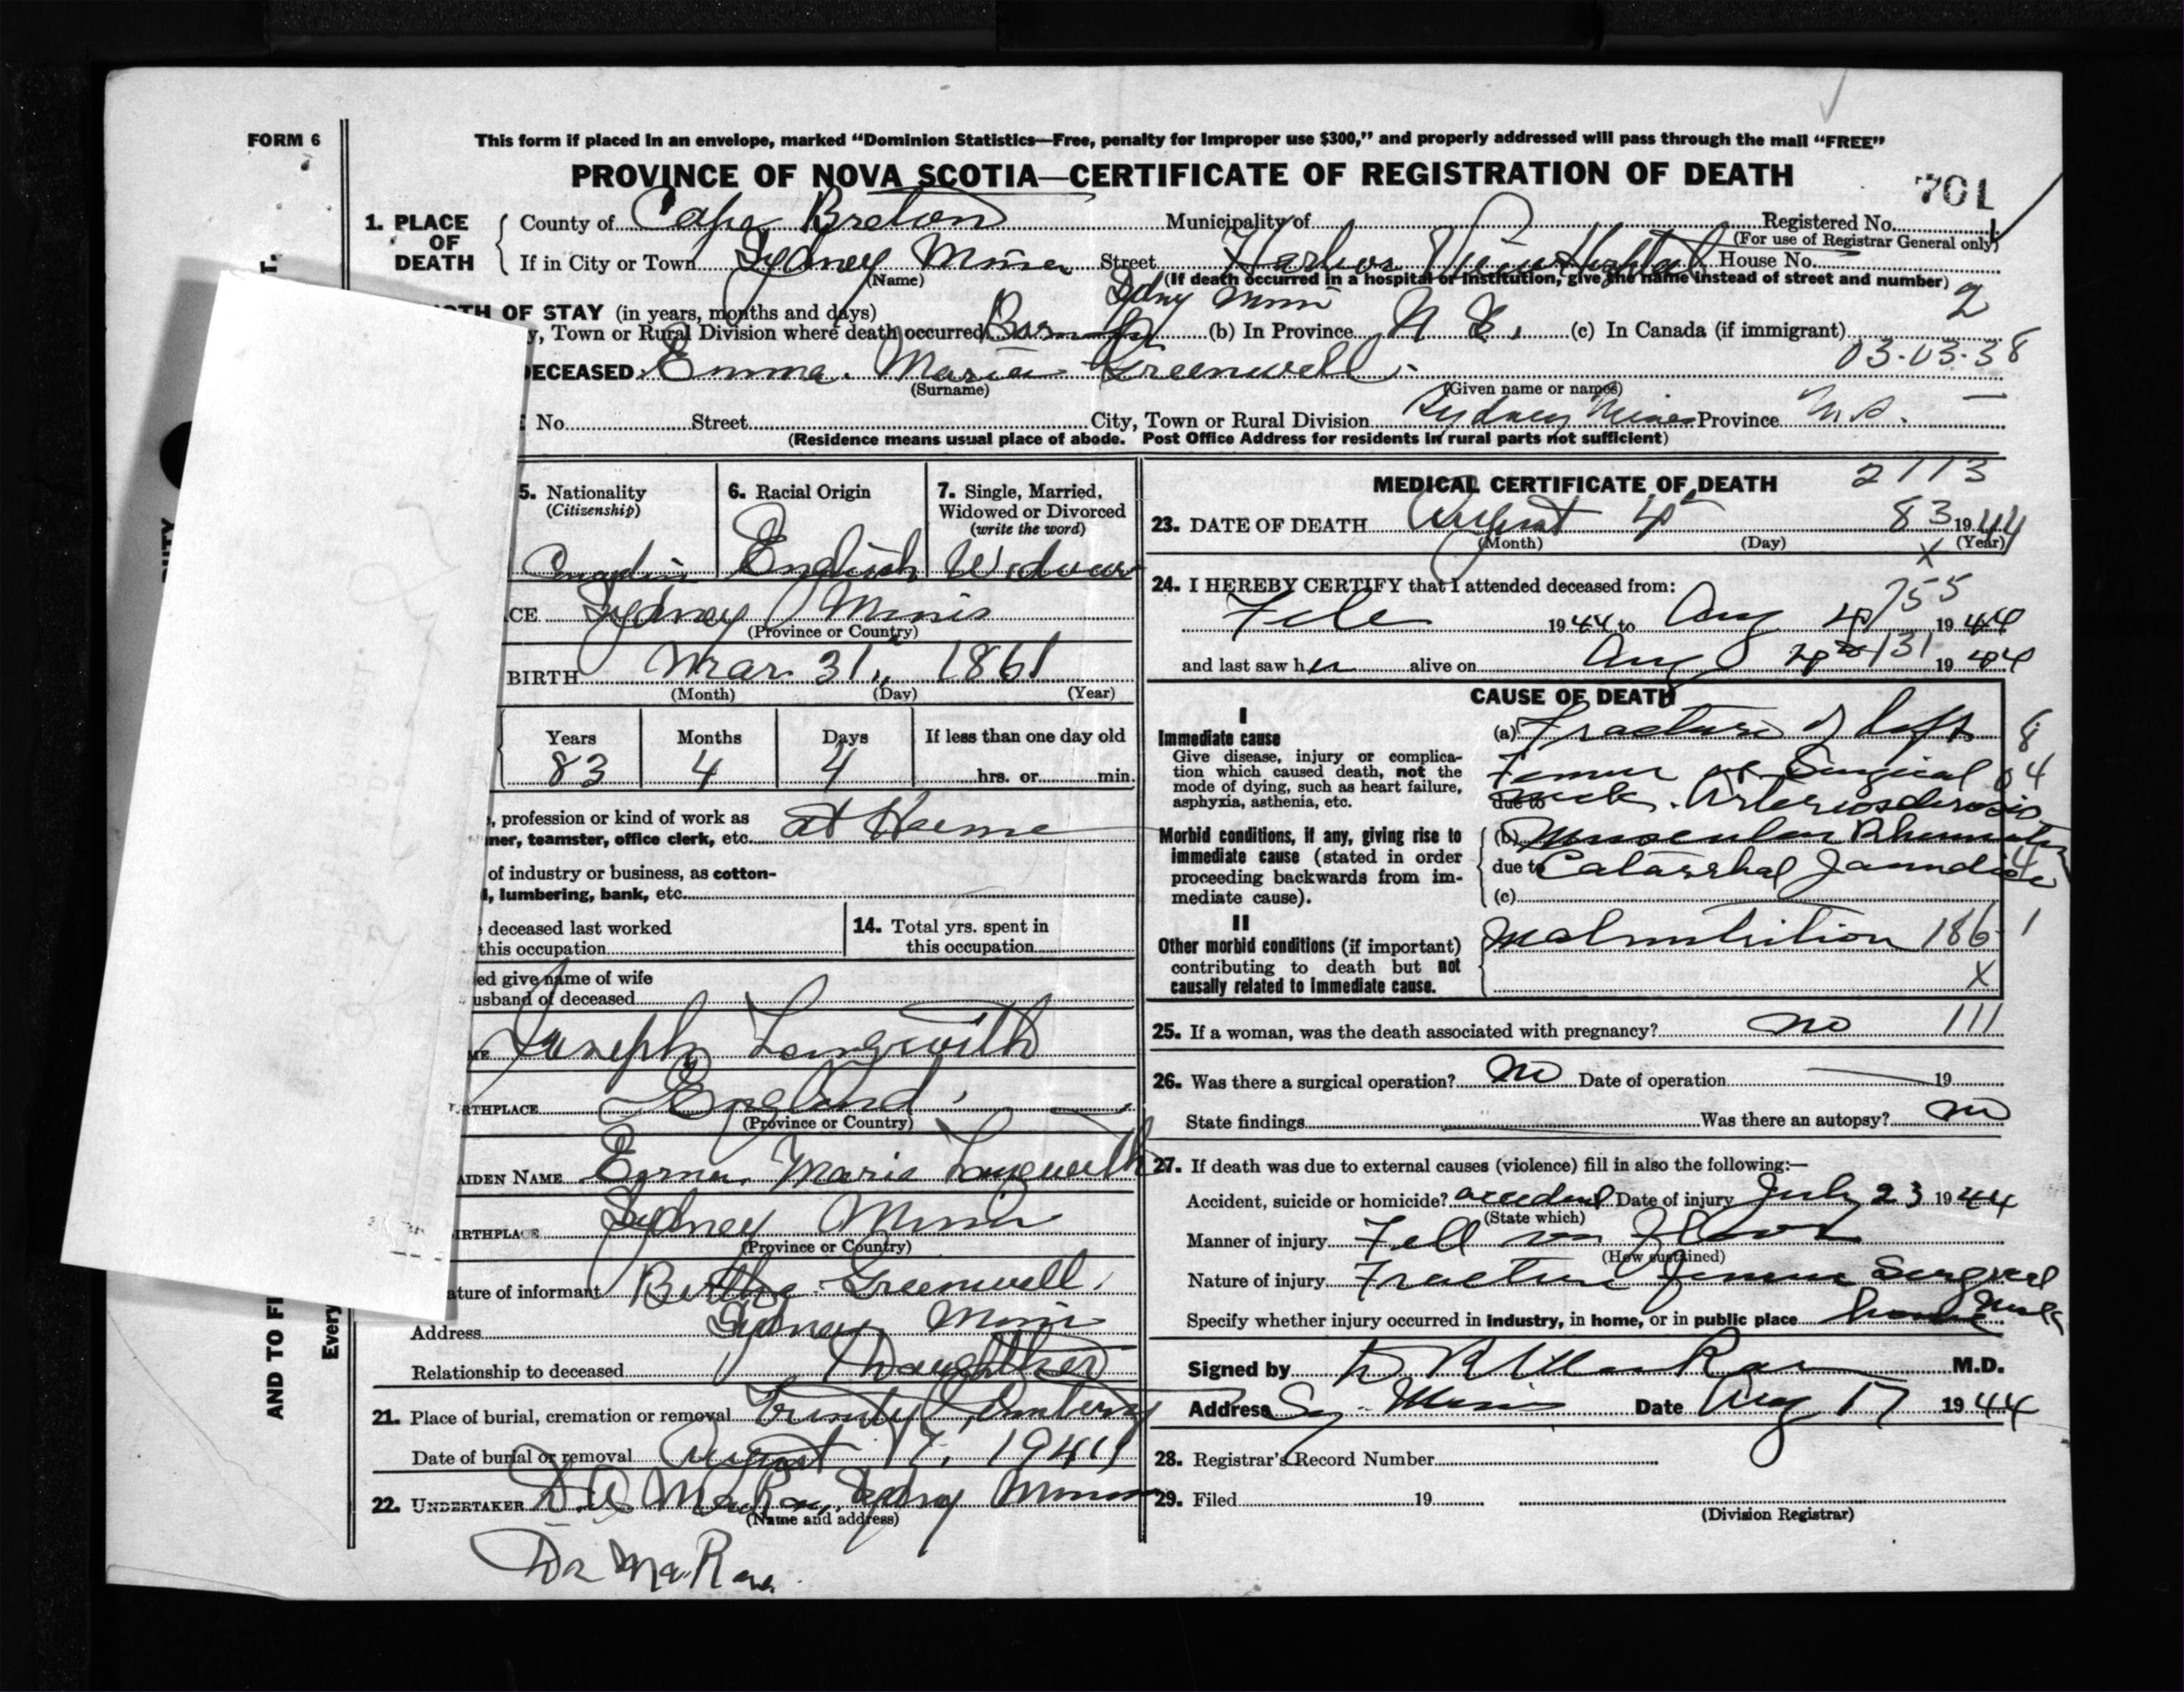 FORM 6
This form if placed in an envelope, marked “Dominion Statistics—Free, penalty for improper use $300,” and properly addressed will pass through the mail “FREE”
PROVINCE OF NOVA SCOTIA—CERTIFICATE OF REGISTRATION OF DEATH
701
1. PLACE OF DEATH
County of Cape Breton Municipality of Registered No.
(For use of Registrar General only)
If in City or Town Sydney Mines Street Harbor View Hospital House No.
(Name) (If death occurred in a hospital or institution, give the name instead of street and number)
2
TH OF STAY (in years, months and days) Sydny Mines
y, Town or Rural Division where death occurred Born (b) In Province N S. (c) In Canada (if immigrant)
03-03-38
DECEASED Emma Maria Greenwell
(Surname) (Given name or names)
No. Street City, Town or Rural Division Sydney Mines Province N.S.
(Residence means usual place of abode. Post Office Address for residents in rural parts not sufficient)
5. Nationality (Citizenship)
6. Racial Origin
7. Single, Married, Widowed or Divorced (write the word)
English Widow
CE Sydney Mines
(Province or Country)
BIRTH Mar. 31, 1861
(Month) (Day) (Year)
Years Months Days If less than one day old
83 4 4 hrs. or min.
, profession or kind of work as
mer, teamster, office clerk, etc. at Home
of industry or business, as cotton-
l, lumbering, bank, etc.
deceased last worked
this occupation
14. Total yrs. spent in
this occupation
ed give name of wife
usband of deceased
ME Joseph Longwith
RTHPLACE England
(Province or Country)
AIDEN NAME Emma Maria Longwith
IRTHPLACE Sydney Mines
(Province or Country)
ature of informant Bertha Greenwell
Address Sydney Mines
Relationship to deceased Daughter
21. Place of burial, cremation or removal Trinity Cemetery
Date of burial or removal August 17, 1944
22. UNDERTAKER D.A. MacRae, Sydney Mines
(Name and address)
Dr MacRae
MEDICAL CERTIFICATE OF DEATH
2113
23. DATE OF DEATH August 4 83 1944
(Month) (Day) (Year)
X
24. I HEREBY CERTIFY that I attended deceased from:
755
1944 to Aug 4 1944
and last saw her alive on Aug 4 131 1944
CAUSE OF DEATH
I
Immediate cause
Give disease, injury or complica-
tion which caused death, not the
mode of dying, such as heart failure,
asphyxia, asthenia, etc.
(a) Fracture of left 8
Femur at Surgical 04
due to neck. Arteriosclerosis
Morbid conditions, if any, giving rise to
immediate cause (stated in order
proceeding backwards from im-
mediate cause).
(b) Muscular Rheumatism
due to Catarrhal Jaundice 4
(c)
II
Other morbid conditions (if important)
contributing to death but not
causally related to immediate cause.
Malnutrition 186 1
X
25. If a woman, was the death associated with pregnancy? no 111
26. Was there a surgical operation? no Date of operation 19
State findings Was there an autopsy? no
27. If death was due to external causes (violence) fill in also the following:—
Accident, suicide or homicide? accident Date of injury July 23 1944
(State which)
Manner of injury Fell on Floor
(How sustained)
Nature of injury Fracture femur Surgical
Neck
Specify whether injury occurred in industry, in home, or in public place home
Signed by M.D.
Address Sy. Mines Date Aug 17 1944
28. Registrar's Record Number
29. Filed 19
(Division Registrar)
AND TO FI
Every